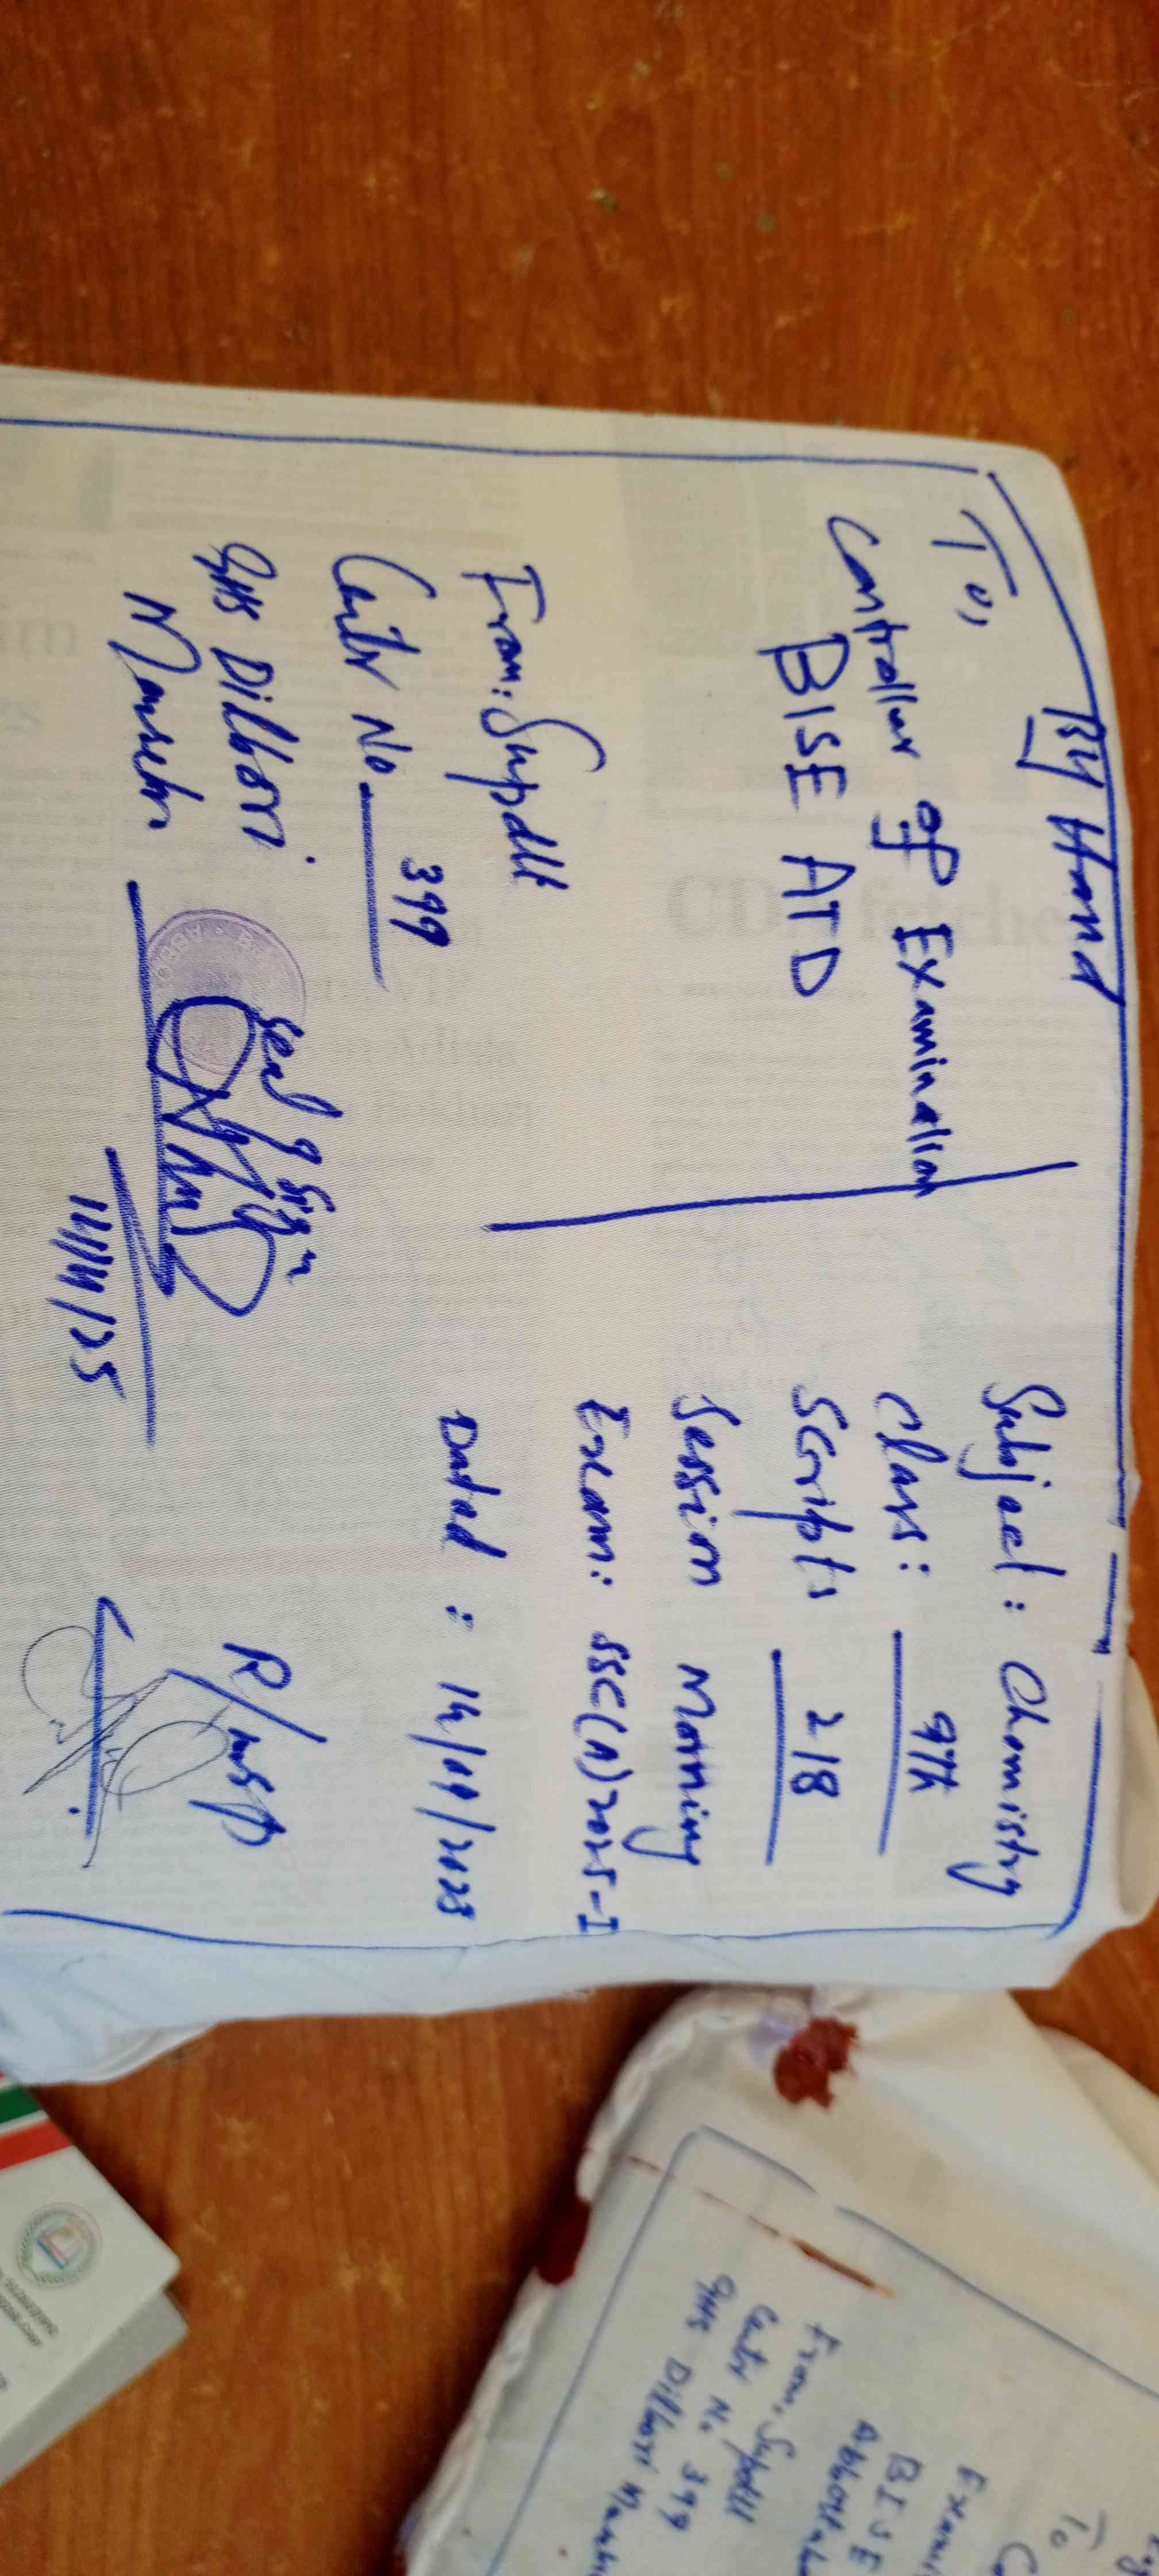 By Hand
To,
Controller of Examination
BISE ATD
From: Supdtt
Centr No 399
GHS Dilbori
Manseh
Seal & Sign
14/4/25
Subject: Chemistry
Class: 9th
Scripts 218
Session Morning
Exam: SSC(A)2025-I
Dated : 14/04/2025
R/Insp
To
BISE
From: Supdtt
Centr No. 399
GHS Dilbori